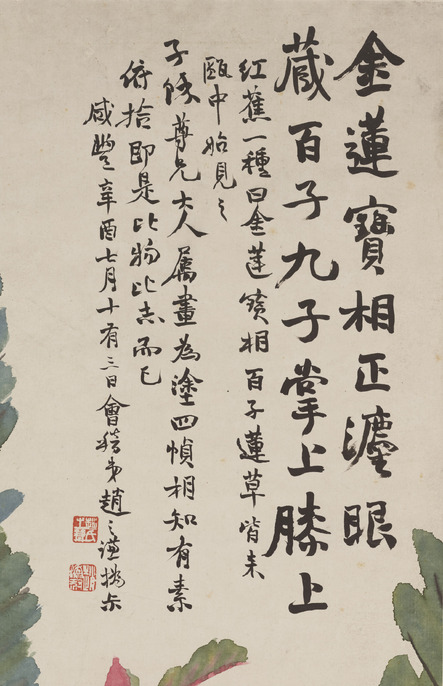 金蓮寶相正灋眼
藏百子九子掌上膝上
紅蕉一種曰金蓮寶相百子蓮草皆来
甌中始見之
尊兄大人屬畫為塗四幀相知有素
俯拾即是比物比志而已
咸豐辛酉七月十有三日會稽弟趙之謙撝尗